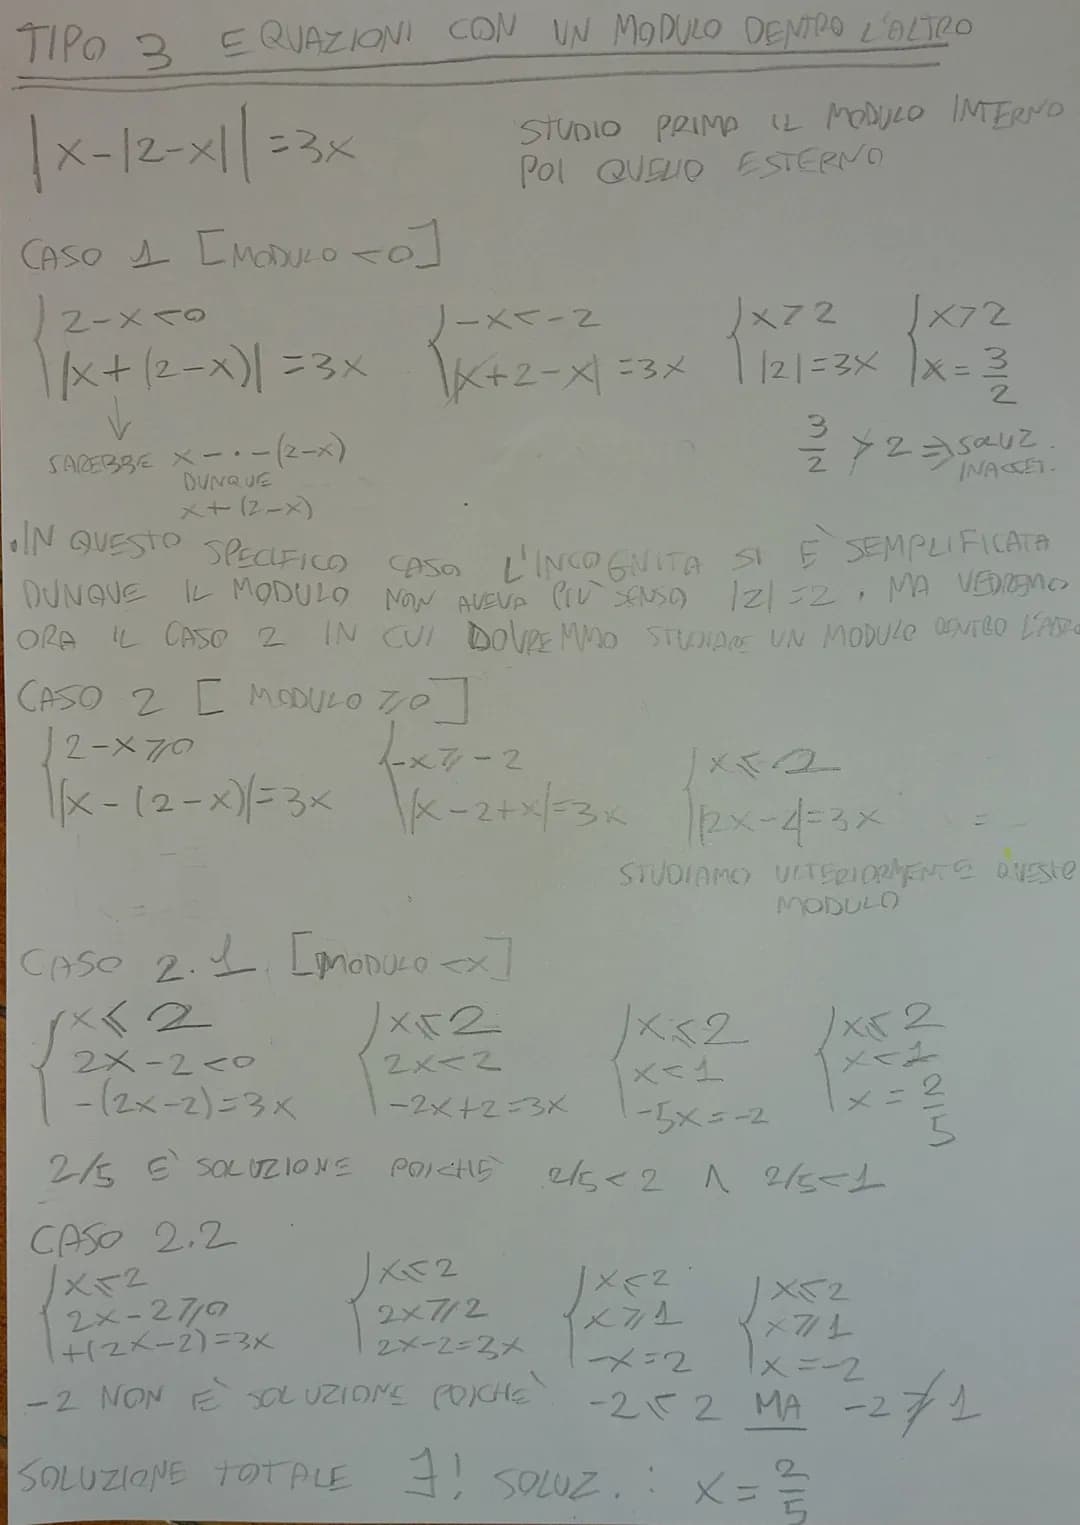 TIPO 3 EQUAZIONI CON UN MODULO DENTRO L'ALTRO
|x-|2-x||=3x
STUDIO PRIMA IL MODULO INTERNO
POI QUELLO ESTERNO
CASO 1 [MODULO <0]
{2-x<0 {-x<-2 {x>2 {x>2
|x+(2-x)|=3x |x+2-x|=3x |2|=3x x=3/2
↓
SAREBBE x-·-(2-x)
DUNQUE
x+(2-x)
3/2 ≯ 2 ⇒ SOLUZ.
INACCET.
•IN QUESTO SPECIFICO CASO L'INCOGNITA SI È SEMPLIFICATA
DUNQUE IL MODULO NON AVEVA PIÙ SENSO |2|=2, MA VEDREMO
ORA IL CASO 2 IN CUI DOVREMMO STUDIARE UN MODULO DENTRO L'ALTRO
CASO 2 [MODULO ≥0]
{2-x≥0 {-x≥-2 {x≤2
|x-(2-x)|=3x |x-2+x|=3x |2x-2|=3x =
STUDIAMO ULTERIORMENTE QUESTO
MODULO
CASO 2.1 [MODULO <x]
{x≤2 {x≤2 {x≤2 {x≤2
2x-2<0 2x<2 x<1 x<1
-(2x-2)=3x -2x+2=3x -5x=-2 x=2/5
2/5 È SOLUZIONE POICHÈ 2/5<2 ∧ 2/5<1
CASO 2.2
{x≤2 {x≤2 {x≤2 {x≤2
2x-2≥0 2x≥2 x≥1 x≥1
+(2x-2)=3x 2x-2=3x -x=2 x=-2
-2 NON È SOLUZIONE POICHÈ -2≤2 MA -2≱1
SOLUZIONE TOTALE ∃! SOLUZ.: x=2/5